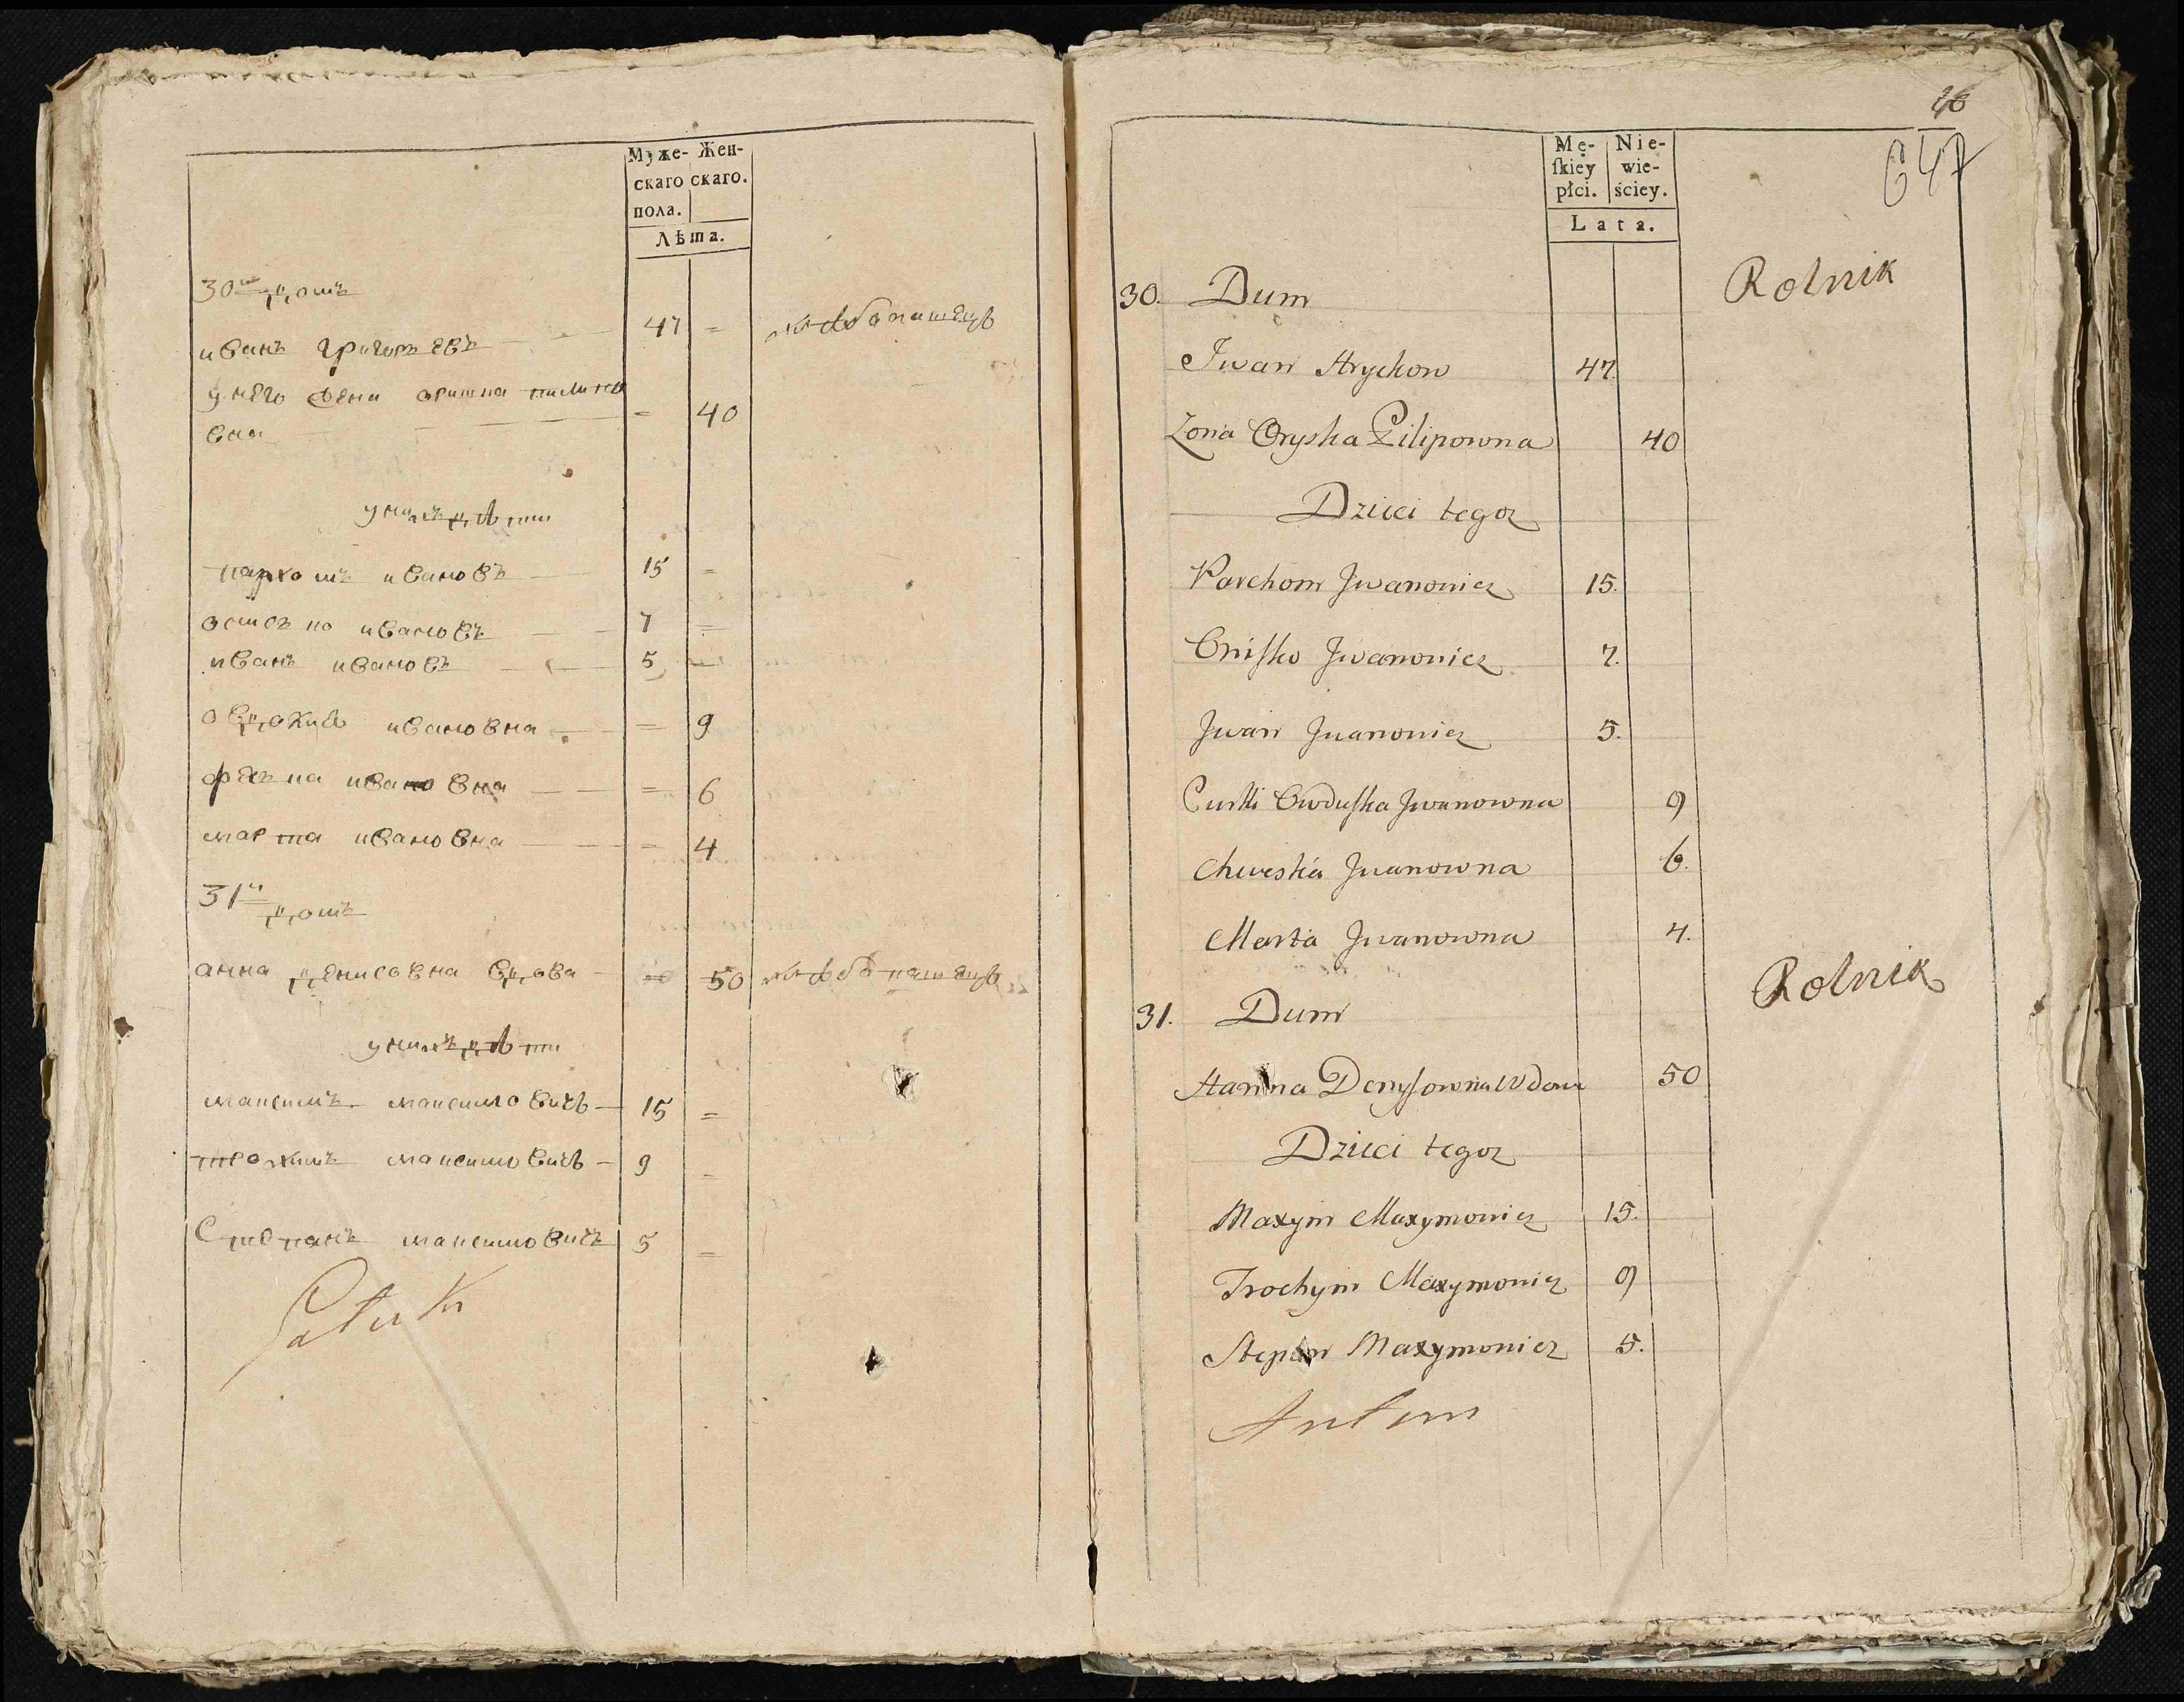 Муже- Жен-
скаго скаго.
пола.
Лѣта.
30й домъ
иванъ григорьевъ 47 = хлѣбопашецъ
у него жена оришка пилипо
вна = 40
у нихъ дѣти
пархомъ ивановъ 15 =
ивановъ 7 =
иванъ ивановъ 5 =
овдокия ивановна = 9
ивановна = 6
марта ивановна = 4
31й
домъ
анна денисовна вдова = 50 хлѣбопашецъ
у нихъ дѣти
максимъ максимовичь 15 =
трохимъ максимовичь 9 =
степанъ максимовичъ 5 =
26
647
Mę- Nie-
ſkiey wie-
płci. ściey.
Lata.
30. Dum Rolnik
Jwan Hrychow 47.
Żona Oryska Pilipowna 40
Dzieci tegoz
Parchom Jwanowicz 15.
Oniſko Jwanowicz 7.
Jwan Jwanowicz 5.
Curki Owduſka Jwanowna 9
Chweska Jwanowna 6.
Marta Jwanowna 4.
31. Dum Rolnik
Hanna Denyſowna Wdowa 50
Dzieci tegoz
Maxym Maxymowicz 15.
Trochym Maxymowicz 9
Stepan Maxymowicz 5.